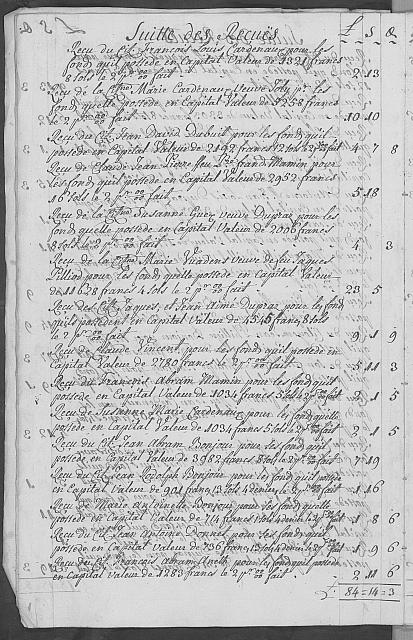 Suitte des Recuës £ S &
Recu du Cit. François Louis Cardenaux pour les
fonds qu'il possede en Capital Valeur de 1321 francs
8 sols le 2 pr 00 fait 2 13
Recu de la Citne Marie Cardenau Veuve pr les
fond quelle possede en Capital Valeur de 5258 francs
le 2 pr 00 fait 10 10
Recu du Cit. Jean David Dubuit pour les fond qu'il
possede en Capital Valeur de 2192 francs 12 sols le 2 pr 00 fait 4 7 8
Recu de Claude Jean Pierre feu Mamin pour
les fond qu'il possede en Capital Valeur de 2952 francs
16 sols le 2 pr 00 fait 5 18
Recu de la Citne Susanne Veuve Dupraz pour les
fond quelle possede en Capital Valeur de 2006 francs
8 sols le 2 pr 00 fait 4 3
Recu de la Citne Marie Veuve de feu Jaques
Pilliod pour les fond quelle possede en Capital Valeur
de 11628 francs 4 sols le 2 pr 00 fait 23 5
Recu des Cit. Jaques, et Jean Aimé Dupraz pour les fond
qu'ils possedent en Capital Valeur de 4545 francs 8 sols
le pr 00 fait 9 1 9
Recu de Claude Vincent pour les fond qu'il possede en
Capital Valeur de 2780 francs le 2 pr 00 fait 5 11 3
Recu du François Abram Mamin pour les fond qu'il
possede en Capital Valeur 1034 francs 5 sols le 2 pr 00 fait 2 1 5
Recu de Susanne Marie Cardenaux pour les fond quelle
possede en Capital Valeur de 1034 francs 5 sols le 2 pr 00 fait 2 1 5
Recu du Cit. Jean Abram Bonjour pour les fond qu'il
possede en Capital Valeur de 3982 francs 8 sols le 2 pr 00 fait 7 19
Recu du Cit. Jean Rodolph Bonjour pour les fond qu'il possede
en Capital Valeur de 901 francs 13 sols 4 deniers le 2 pr 00 fait 1 16
Recu de Marie Antoinette Bonjour pour les fond quelle
possede en Capital Valeur de 714 francs 1 sols 4 den le 2 pr 00 fait 1 8 6
Recu du Cit. Jean Antoine Donnet pour les fond qu'il
possede en Capital Valeur de 736 francs 13 sols 4 den le 2 pr 00 fait 1 9 6
Recu du Cit. François Abram pour les fond qu'il possede
en Capital Valeur de 1283 francs le 2 pr 00 fait 2 11 6
£ 84=14=3